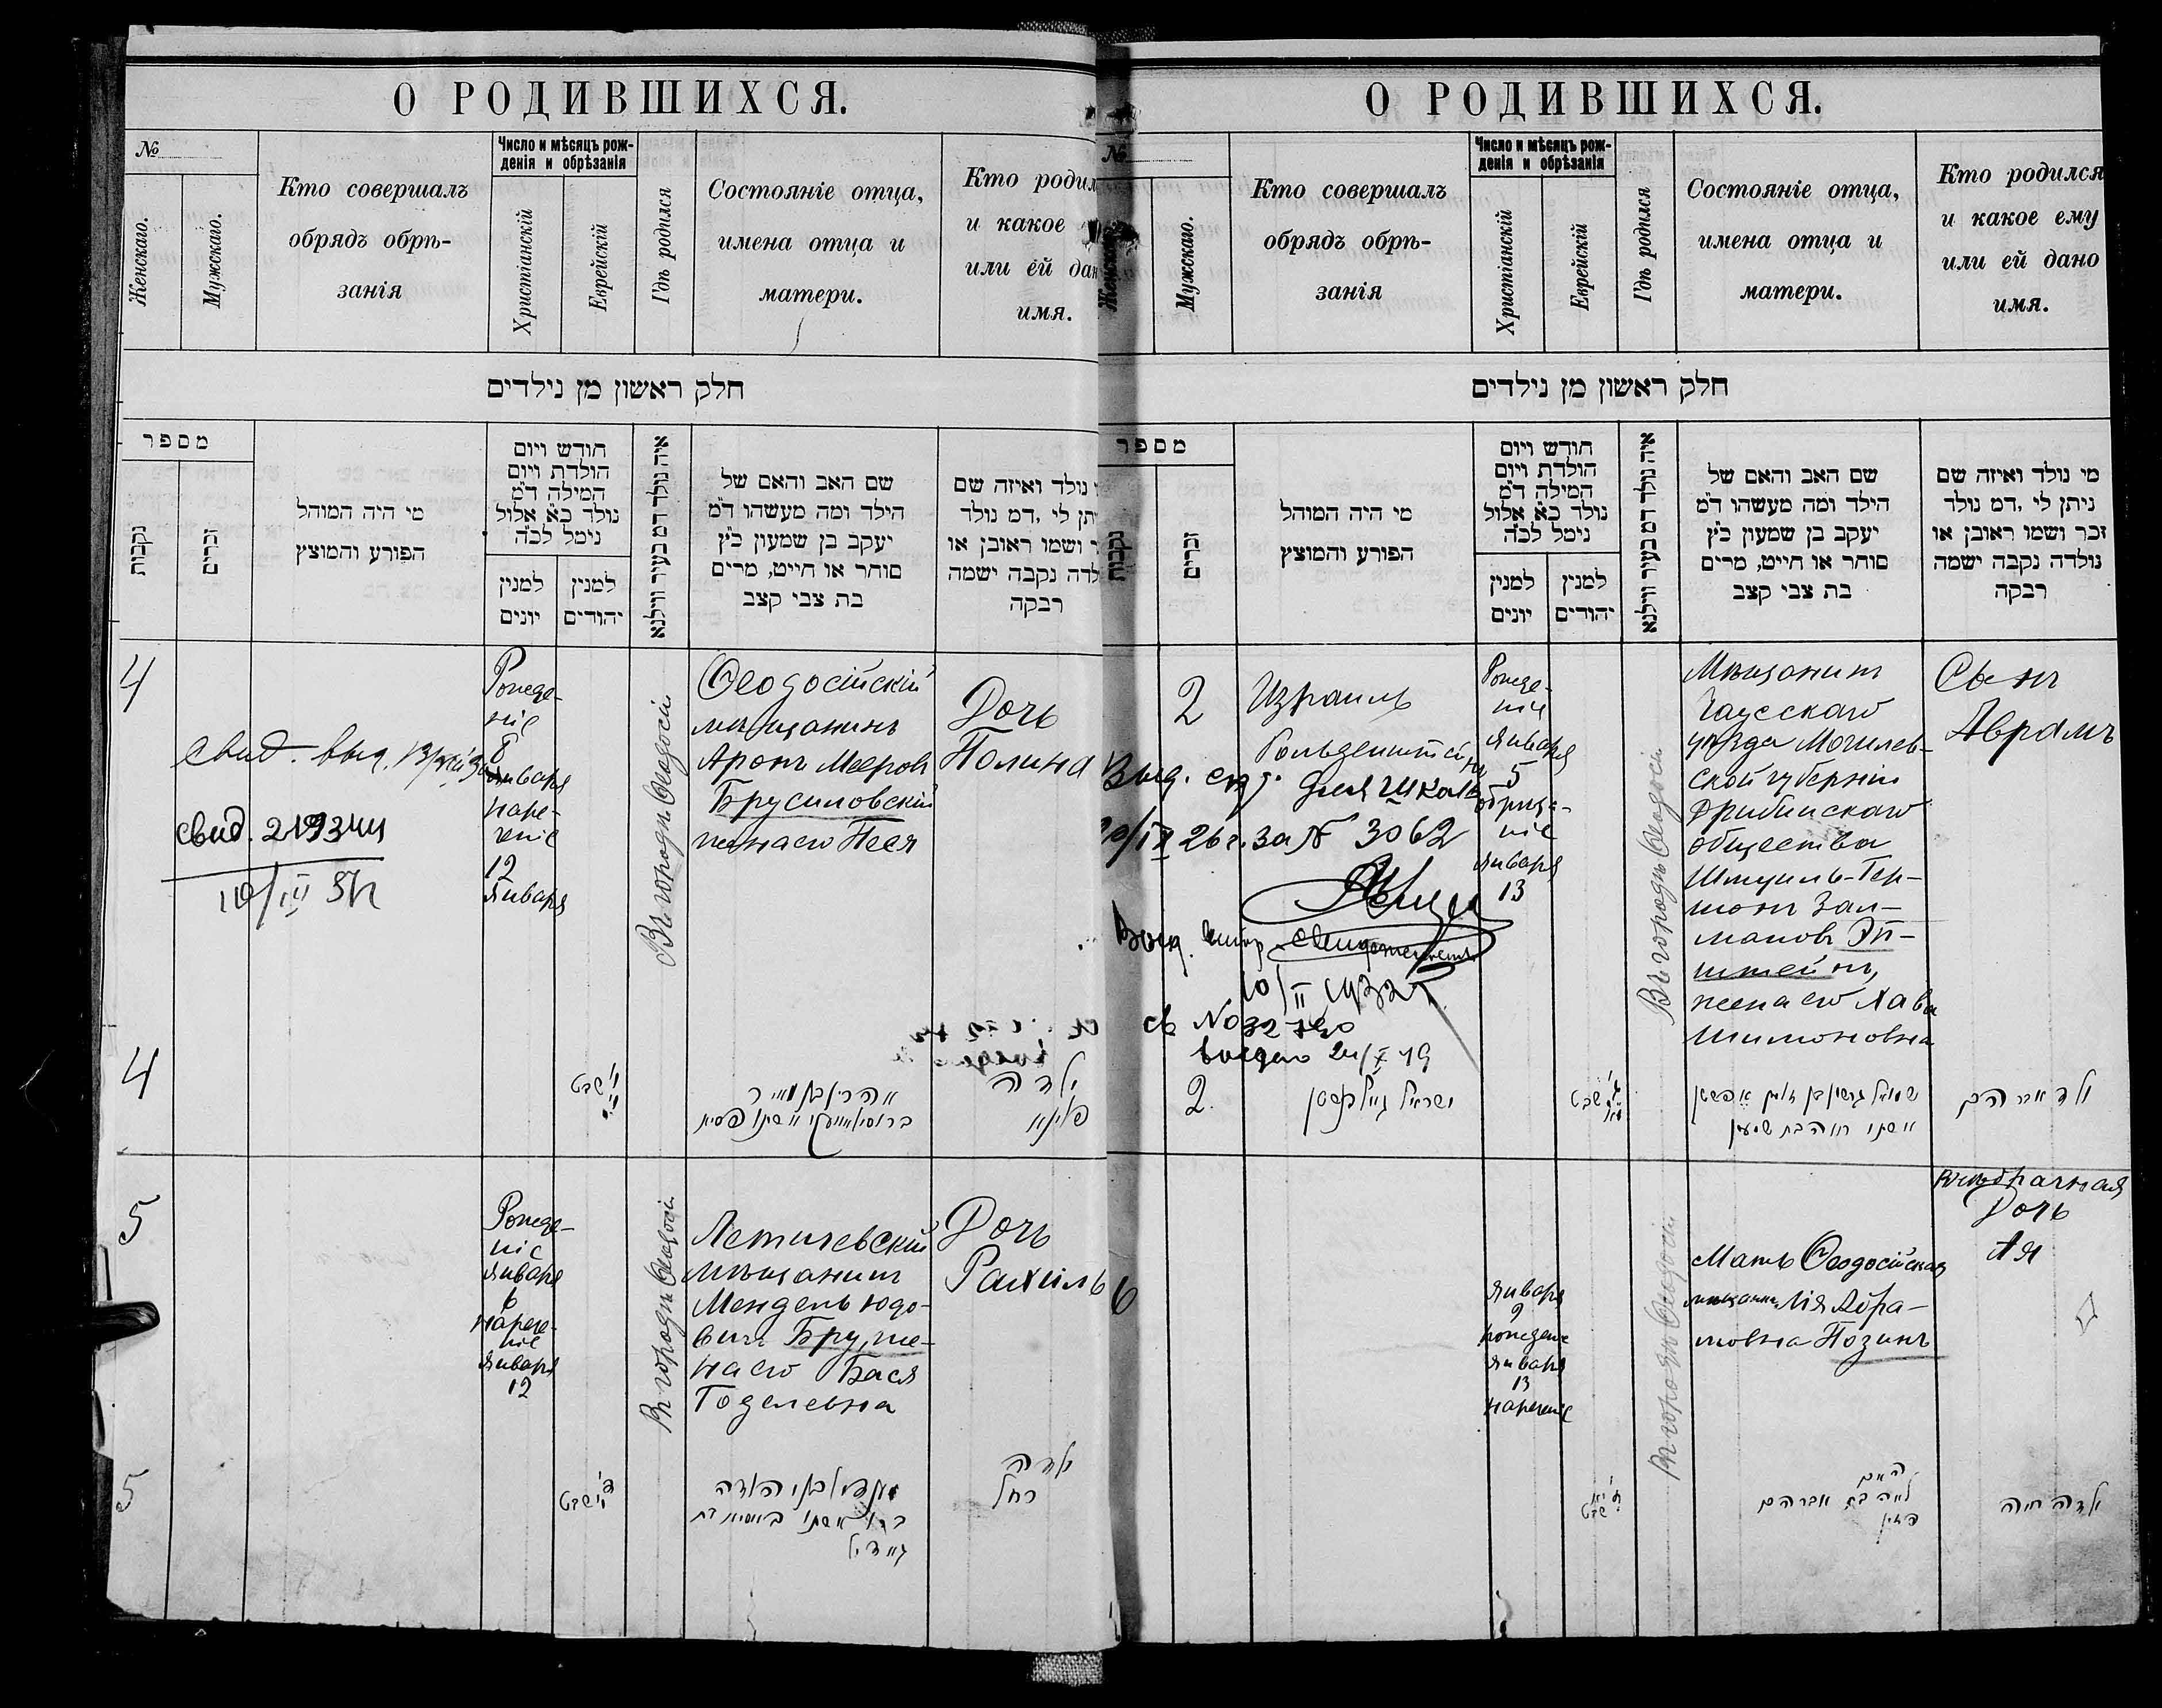 О РОДИВШИХСЯ.
№
Женскаго.
Мужскаго.
Кто совершалъ
обрядъ обрѣ-
занія
Число и мѣсяцъ рож-
денія и обрѣзанія
Христіанскій
Еврейскій
Гдѣ родился
Состояніе отца,
имена отца и
матери.
Кто родил
и какое
или ей дан
имя.
חלק ראשון מן נילדים
מספר
נקבות
זכרים
מי היה המוהל
הפורע והמוצץ
חודש ויום
הולדת ויום
המילה ד״מ
נולד כ״א אלול
נימל לכ״ה
למנין
יונים
למנין
יהודים
איה נולד דמ בעיר ווילנא
שם האב והאם של
הילד ומה מעשהו ד״מ
יעקב בן שמעון כ״ץ
סוחר או חייט, מרים
בת צבי קצב
נולד ואיזה שם
תן לי ,דמ נולד
ר ושמו ראובן או
לדה נקבה ישמה
רבקה
4
свид. выд.
свид. 21934
Рожде-
ніе
6
января
наре-
ченіе
12
января
Въ городѣ Ѳеодосіи
Ѳеодосійскій
мѣщанинъ
Аронъ Мееровъ
Брусиловскій
жена его Песя
Дочь
Полина
4
שבט
ילדה
פלינא
5
Рожде-
ніе
января
6
нарече-
ніе
января
12
Въ городѣ Ѳеодосіи
Летичевскій
мѣщанинъ
Мендель Юдо-
вичъ Бру, же-
на его Бася
Годелевна
Дочь
Рахиль
5
שבט
ילדה
רחל
О РОДИВШИХСЯ.
№
Женскаго.
Мужскаго.
Кто совершалъ
обрядъ обрѣ-
занія
Число и мѣсяцъ рож-
денія и обрѣзанія
Христіанскій
Еврейскій
Гдѣ родился
Состояніе отца,
имена отца и
матери.
Кто родился
и какое ему
или ей дано
имя.
חלק ראשון מן נילדים
מספר
נקבות
זכרים
מי היה המוהל
הפורע והמוצץ
חודש ויום
הולדת ויום
המילה ד״מ
נולד כ״א אלול
נימל לכ״ה
למנין
יונים
למנין
יהודים
איה נולד דמ בעיר ווילנא
שם האב והאם של
הילד ומה מעשהו ד״מ
יעקב בן שמעון כ״ץ
סוחר או חייט, מרים
בת צבי קצב
מי נולד ואיזה שם
ניתן לי ,דמ נולד
זכר ושמו ראובן או
נולדה נקבה ישמה
רבקה
2
Израиль
Гольденштейнъ
Выд. для школы
26г. за № 3062
10/II
св №
выдано 24/X 49
Рожде-
ніе
января
5
обрѣза-
ніе
января
13
Въ городѣ Ѳеодосіи
Мѣщанинъ
Чаусскаго
уѣзда Могилев-
ской губерніи
Дрибинскаго
общества
Шмуиль-Гер-
шонъ Зал-
мановъ Эп-
штейнъ,
жена его Хава
Шимоновна
Сынъ
Абрамъ
2.
שבט
ילד אברהם
6
января
9
рожденіе
января
13
нареченіе
Въ городѣ Ѳеодосіи
Мать Ѳеодосійская
Лія Абра-
мовна Позинъ
внѣбрачная
Дочь
שבט
האם
לאה בת אברהם
ילדה חיה